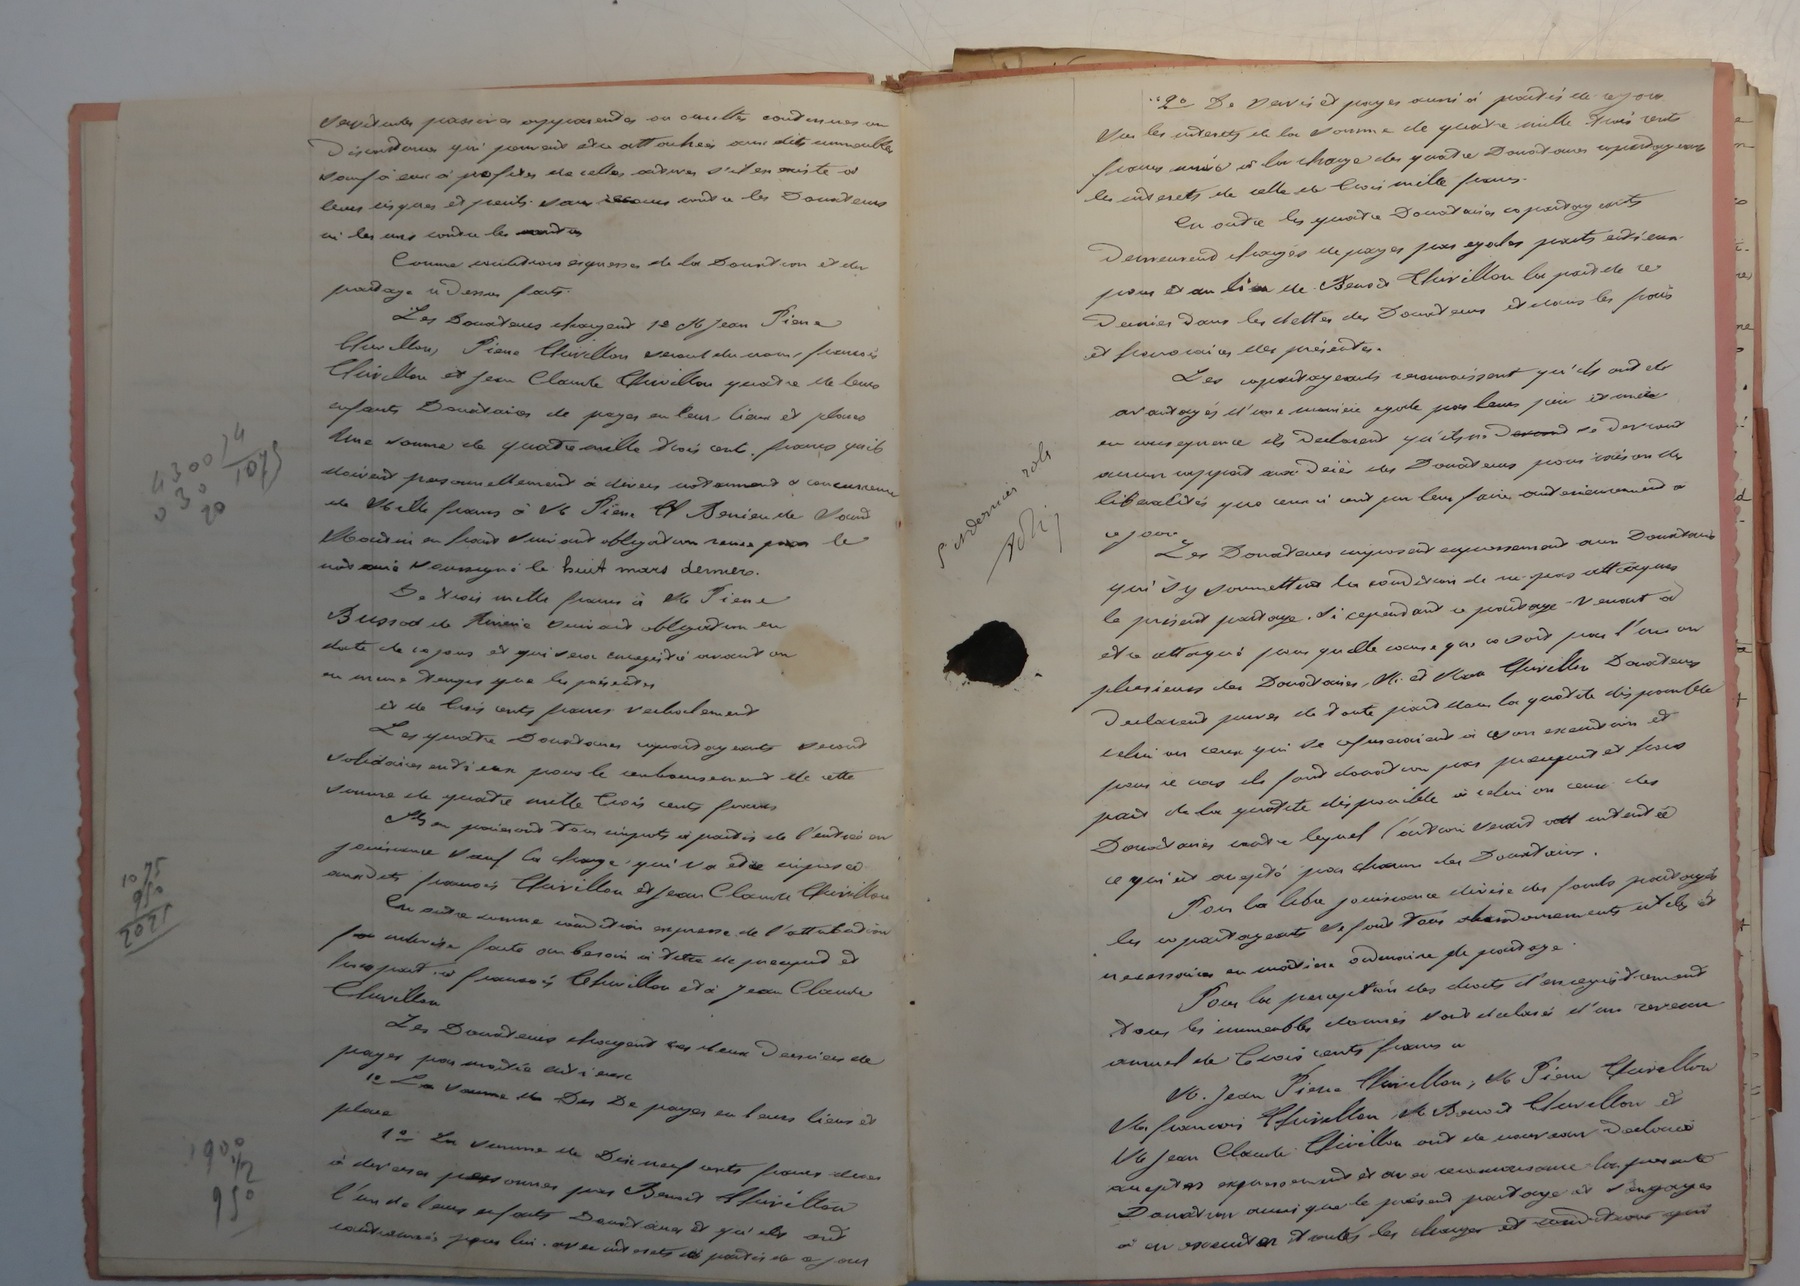 servitudes passives apparentes ou occultes continues ou
discontinues qui peuvent être attachées aux dits immeubles
sauf à eux à profiter de celles actives s'il en existe à
leurs risques et perils sans recours contre les Donateurs
ni les uns contre les autres
Comme conditions expresses de la Donation et du
partage ci dessus faits.
Les Donateurs chargent 1º M Jean Pierre
Chivillon, Pierre Chivillon second du nom, françois
Chivillon et Jean Claude Chivillon quatre de leurs
enfants Donataires de payer en leur lieux et places
Une somme de quatre mille trois cents francs qu'ils
doivent personnellement à divers notamment à concurrence
de Mille francs à M Pierre
en suivant obligation reçue par le
notaire soussigné le huit mars dernier.
De trois mille francs à M Pierre
Bussod de suivant obligation en
date de ce jour et qui sera enregistrée avant ou
en même temps que les présentes
et de trois cents francs verbalement
Les quatre Donataires copartageants seront
solidaires entre eux pour le remboursement de cette
somme de quatre mille trois cents francs
Ils en paieront tous impots à partir de l'entrée en
jouissance sauf la charge qui va être imposée
auxdits françois Chivillon et Jean Claude Chivillon
En outre comme condition expresse de l'attribution
par indivise faite au besoin à titre de preciput et
hors part à françois Chivillon et à Jean Claude
Chivillon
Les Donateurs chargent ces deux derniers de
payer par moitié entre eux
1º La somme de Dix De payer en leurs lieux et
place
1º La somme de Dix neuf cents francs dues
à diverses personnes par Benoit Chivillon
l'un de leurs enfants Donataires et qu'ils ont
cautionnés pour lui avec intérets à partir de ce jour
4300 4
0 30 1075
20
1075
950
2025
1900 1/2
950
"2º De servir et payer aussi à partir de ce jour
les interets de la somme de quatre mille trois cents
francs mise à la charge des quatre Donataires copartageants
les interets de celle de trois mille francs.
En outre les quatre Donataires copartageants
demeurent chargés de payer par egales parts entre eux
pour et au lieu de Benoit Chivillon la part de ce
dernier dans les dettes des Donateurs et dans les frais
et honoraires des présentes.
Les copartageants reconnaissent qu'ils ont été
avantagés d'une manière egale par leurs père et mère
en consequence ils declarent qu'ils ne se devront
aucun rapport au décès des Donateurs pour raison des
libéralités que ceux ci ont pu leur faire antérieurement à
ce jour.
Les Donateurs imposent expressement aux Donataires
qui s'y soumettent la condition de ne pas attaquer
le présent partage. Si cependant ce partage venait à
être attaqué pour quelle cause que ce soit par l'un ou
plusieurs des Donataires, M. et Mme Chivillon Donateurs
declarent priver de toute part dans la quotité disponible
celui ou ceux qui se refuseraient à son execution et
pour ce cas ils font donation par preciput et hors
part de la quotité disponible à celui ou ceux des
Donataires contre lequel l'action serait intentée
ce qui est accepté par chacun des Donataires.
Pour la libre jouissance divise des fonds partagés
les copartageants se font tous abandonnements utiles et
necessaires en matière ordinaire de partage.
Pour la perception des droits d'enregistrement
tous les immeubles donnés sont declarés d'un revenu
annuel de trois cents francs
M. Jean Pierre Chivillon, M Pierre Chivillon
M françois Chivillon, M Benoit Chivillon et
M Jean Claude Chivillon ont de nouveau declaré
accepter expressement et avec reconnaissance la présente
Donation ainsi que le présent partage et s'engager
à en executer toutes les charges et conditions qui